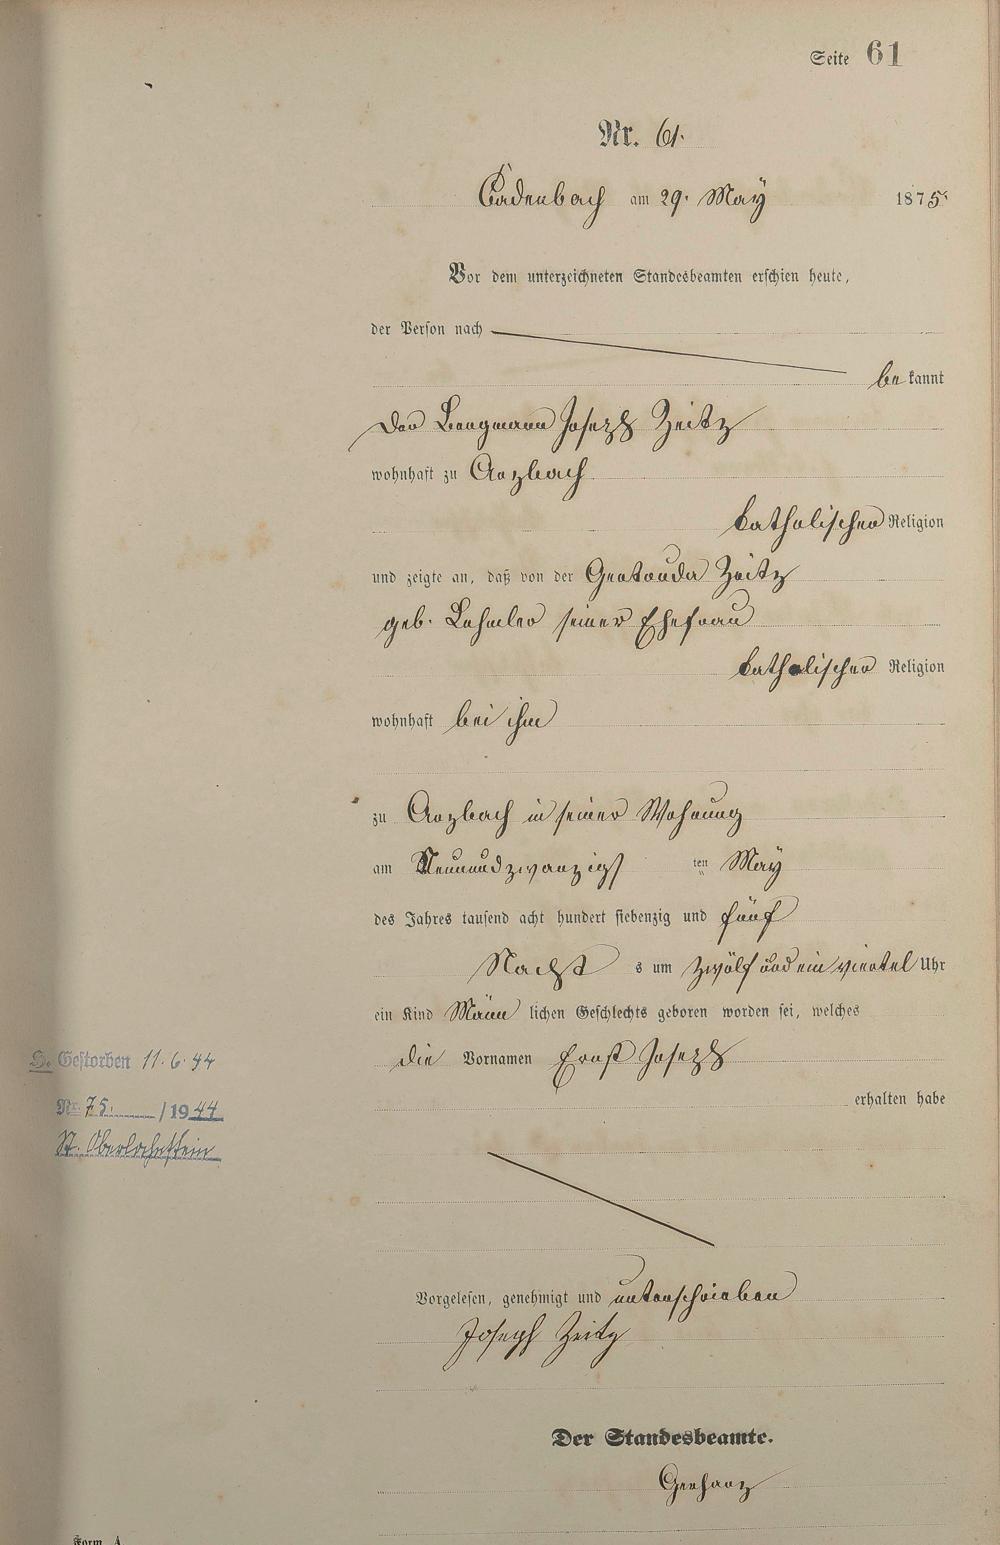 Seite 61
Nr. 61.
Cadenbach am 29. May 1875
Vor dem unterzeichneten Standesbeamten erschien heute,
der Person nach
be kannt
Der Bergmann Joseph Zeitz
wohnhaft zu Arzbach
katholischer Religion
und zeigte an, daß von der Gertrauda Zeitz
geb. seiner Ehefrau
katholischer Religion
wohnhaft bei ihm
zu Arzbach in seiner Wohnung
am Neunundzwanzigs ten May
des Jahres tausend acht hundert siebenzig und fünf
Nacht s um zwölf und ein viertel Uhr
ein Kind Männ lichen Geschlechts geboren worden sei, welches
die Vornamen Ernst Joseph
erhalten habe
Gestorben 11.6.44
Nr. 75. /1944
St. Oberlahnstein
Vorgelesen, genehmigt und unterschrieben
Joseph Zeitz
Der Standesbeamte.
Gerharz
Form. A